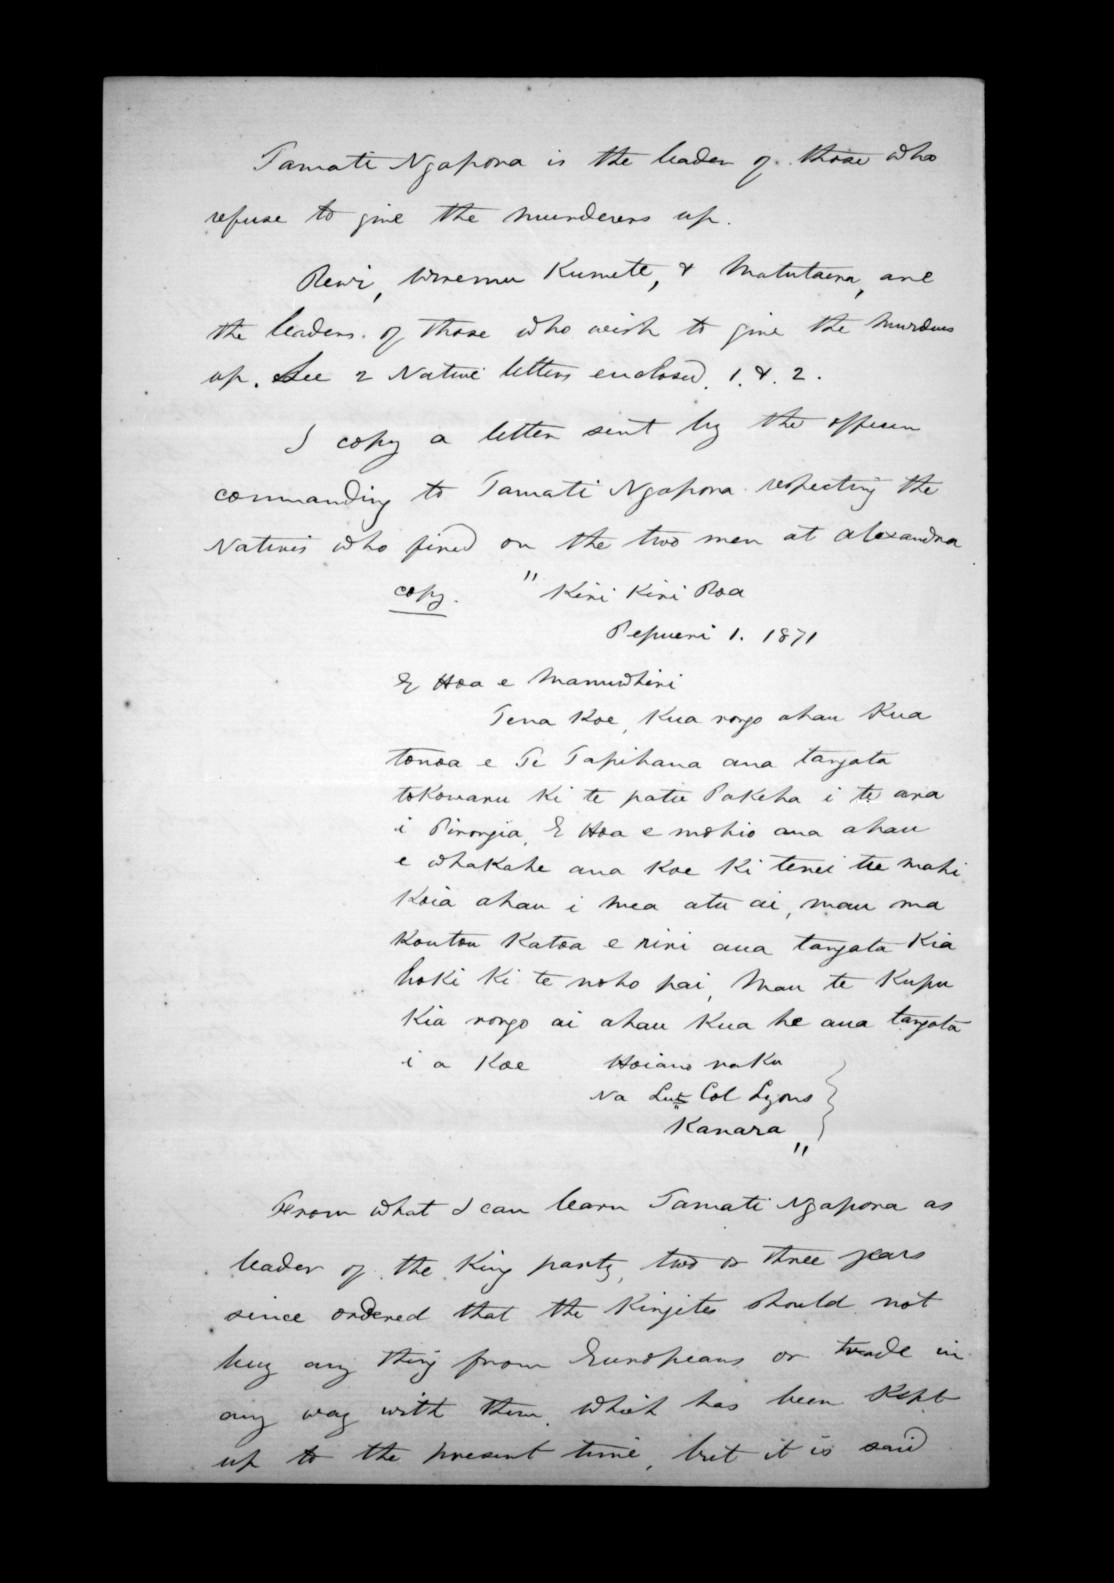 Tamati Ngapora is the leader of those who
refuse to give the murderers up.
Rewi, Wiremu Kumete, & Matutaera, are
the leaders of those who wish to give the murders
up. See 2 Native letters enclosed. 1. & 2.
I copy a letter sent by the officer
commanding to Tamati Ngapora respecting the
Natives who fired on the two men at Alexandra
copy. " Kiri Kiri Roa
Pepueri 1. 1871
E Hoa e Manuwhiri
Tena Koe, Kua rongo ahau Kua
tonoa e Te Tapihana ana tangata
tokowaru ki te patu Pakeha i te ara
i Pirongia, E Hoa e mohio ana ahau
e whakahe ana Koe Ki tenei tu mahi
Koia ahau i mea atu ai, mau ma
Koutou Katoa e riri aua tangata Kia
hoki ki te noho pai, Mau te Kupu
Kia rongo ai ahau Kua he aua tangata
i a Koe Hoiano naku
Na Lut Col Lyons
Kanara "
From what I can learn Tamati Ngapora as
leader of the King party, two or three years
since ordered that the Kingites should not
buy any thing from Europeans or trade in
any way with them. Which has been Kept
up to the present time, but it is said